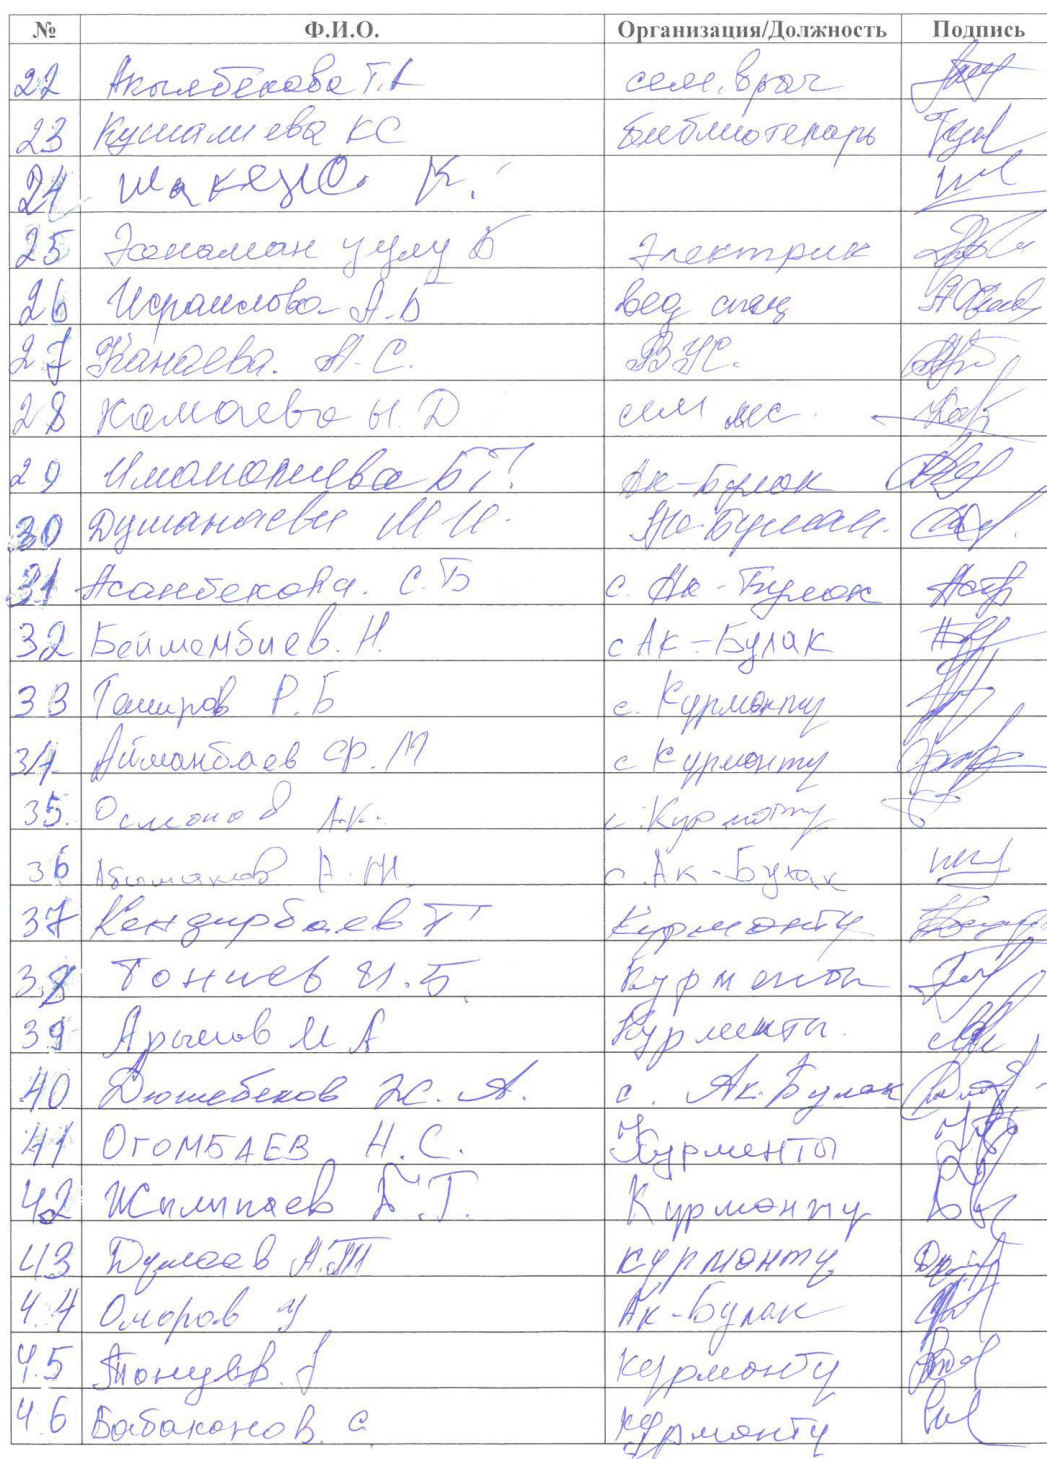 № Ф.И.О. Организация/Должность Подпись
22 Акылбекова Т.А сем. врач
23 Кушалиева КС библиотекарь
24 К.
25 уулу Б Электрик
26 Исраилова А.Б вед спец
27 Канаева. А.С. ВУС.
28 Камаева Н.Д сем мс.
29 Иманалиева БТ. Ак-Булак
30 Думанаева М И. Ак-Булак.
31 Асанбекова. С.Б с. Ак-Булак
32 Бейшембиев. Н. с Ак-Булак
33 Таширов Р.Б с. Курмонту
34 Айманбаев Ф.М с Курмонту
35. Осмонов А.К. с. Курмонту
36 Абышаков А.Ж с. Ак-Булак
37 Кендирбаев Т Курмонту
38 Тониев И.Б. Курменты
39 Арыков М А Курменты.
40 Дюшебеков Ж. А. с. Ак.Булак
41 ОГОМБАЕВ Н.С. Курменты
42 Жылыпаев Б.Т. Курмонту
43 А.Т курмонту
44 Оморов У Ак-Булак
45 Курмонту
46 Бабаканов. С Курмонту